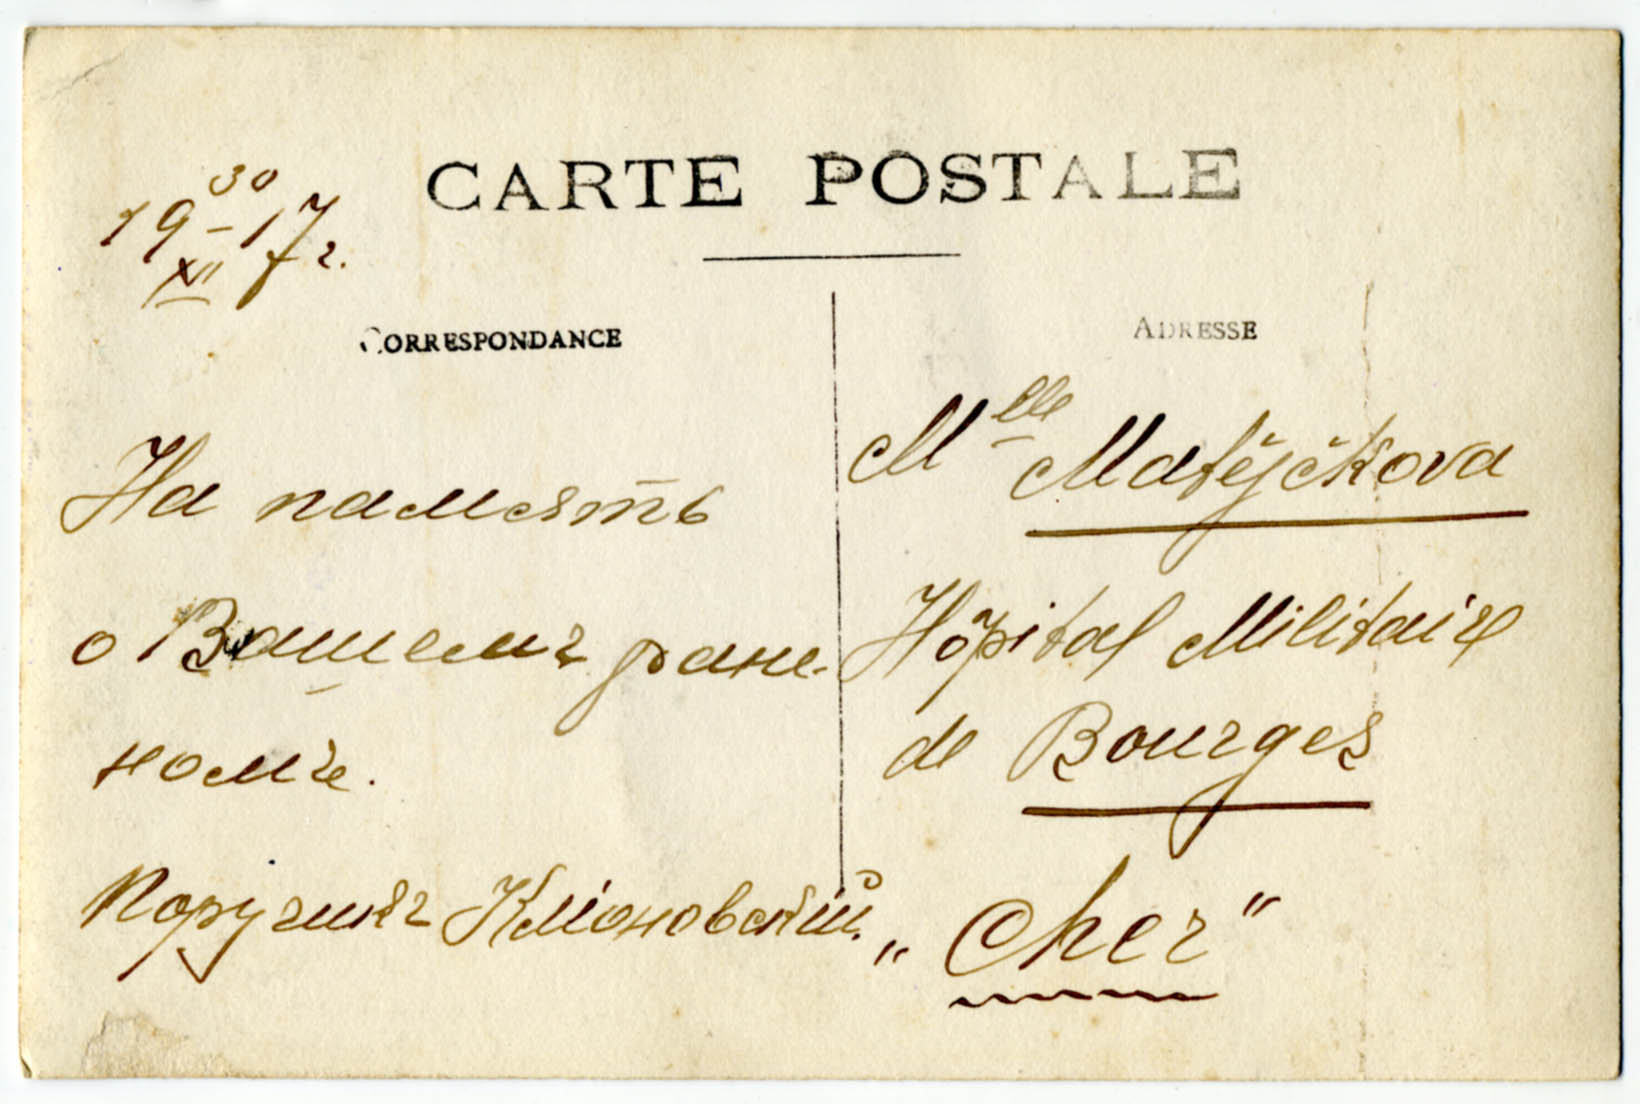 CARTE POSTALE
19 30/XII 17 г.
CORRESPONDANCE
ADRESSE
На память
о Вашемъ ране-
номъ.
Поручикъ Клюновскій.
Mlle Matějčkova
Hôpital Militaire
de Bourges
„Cher"